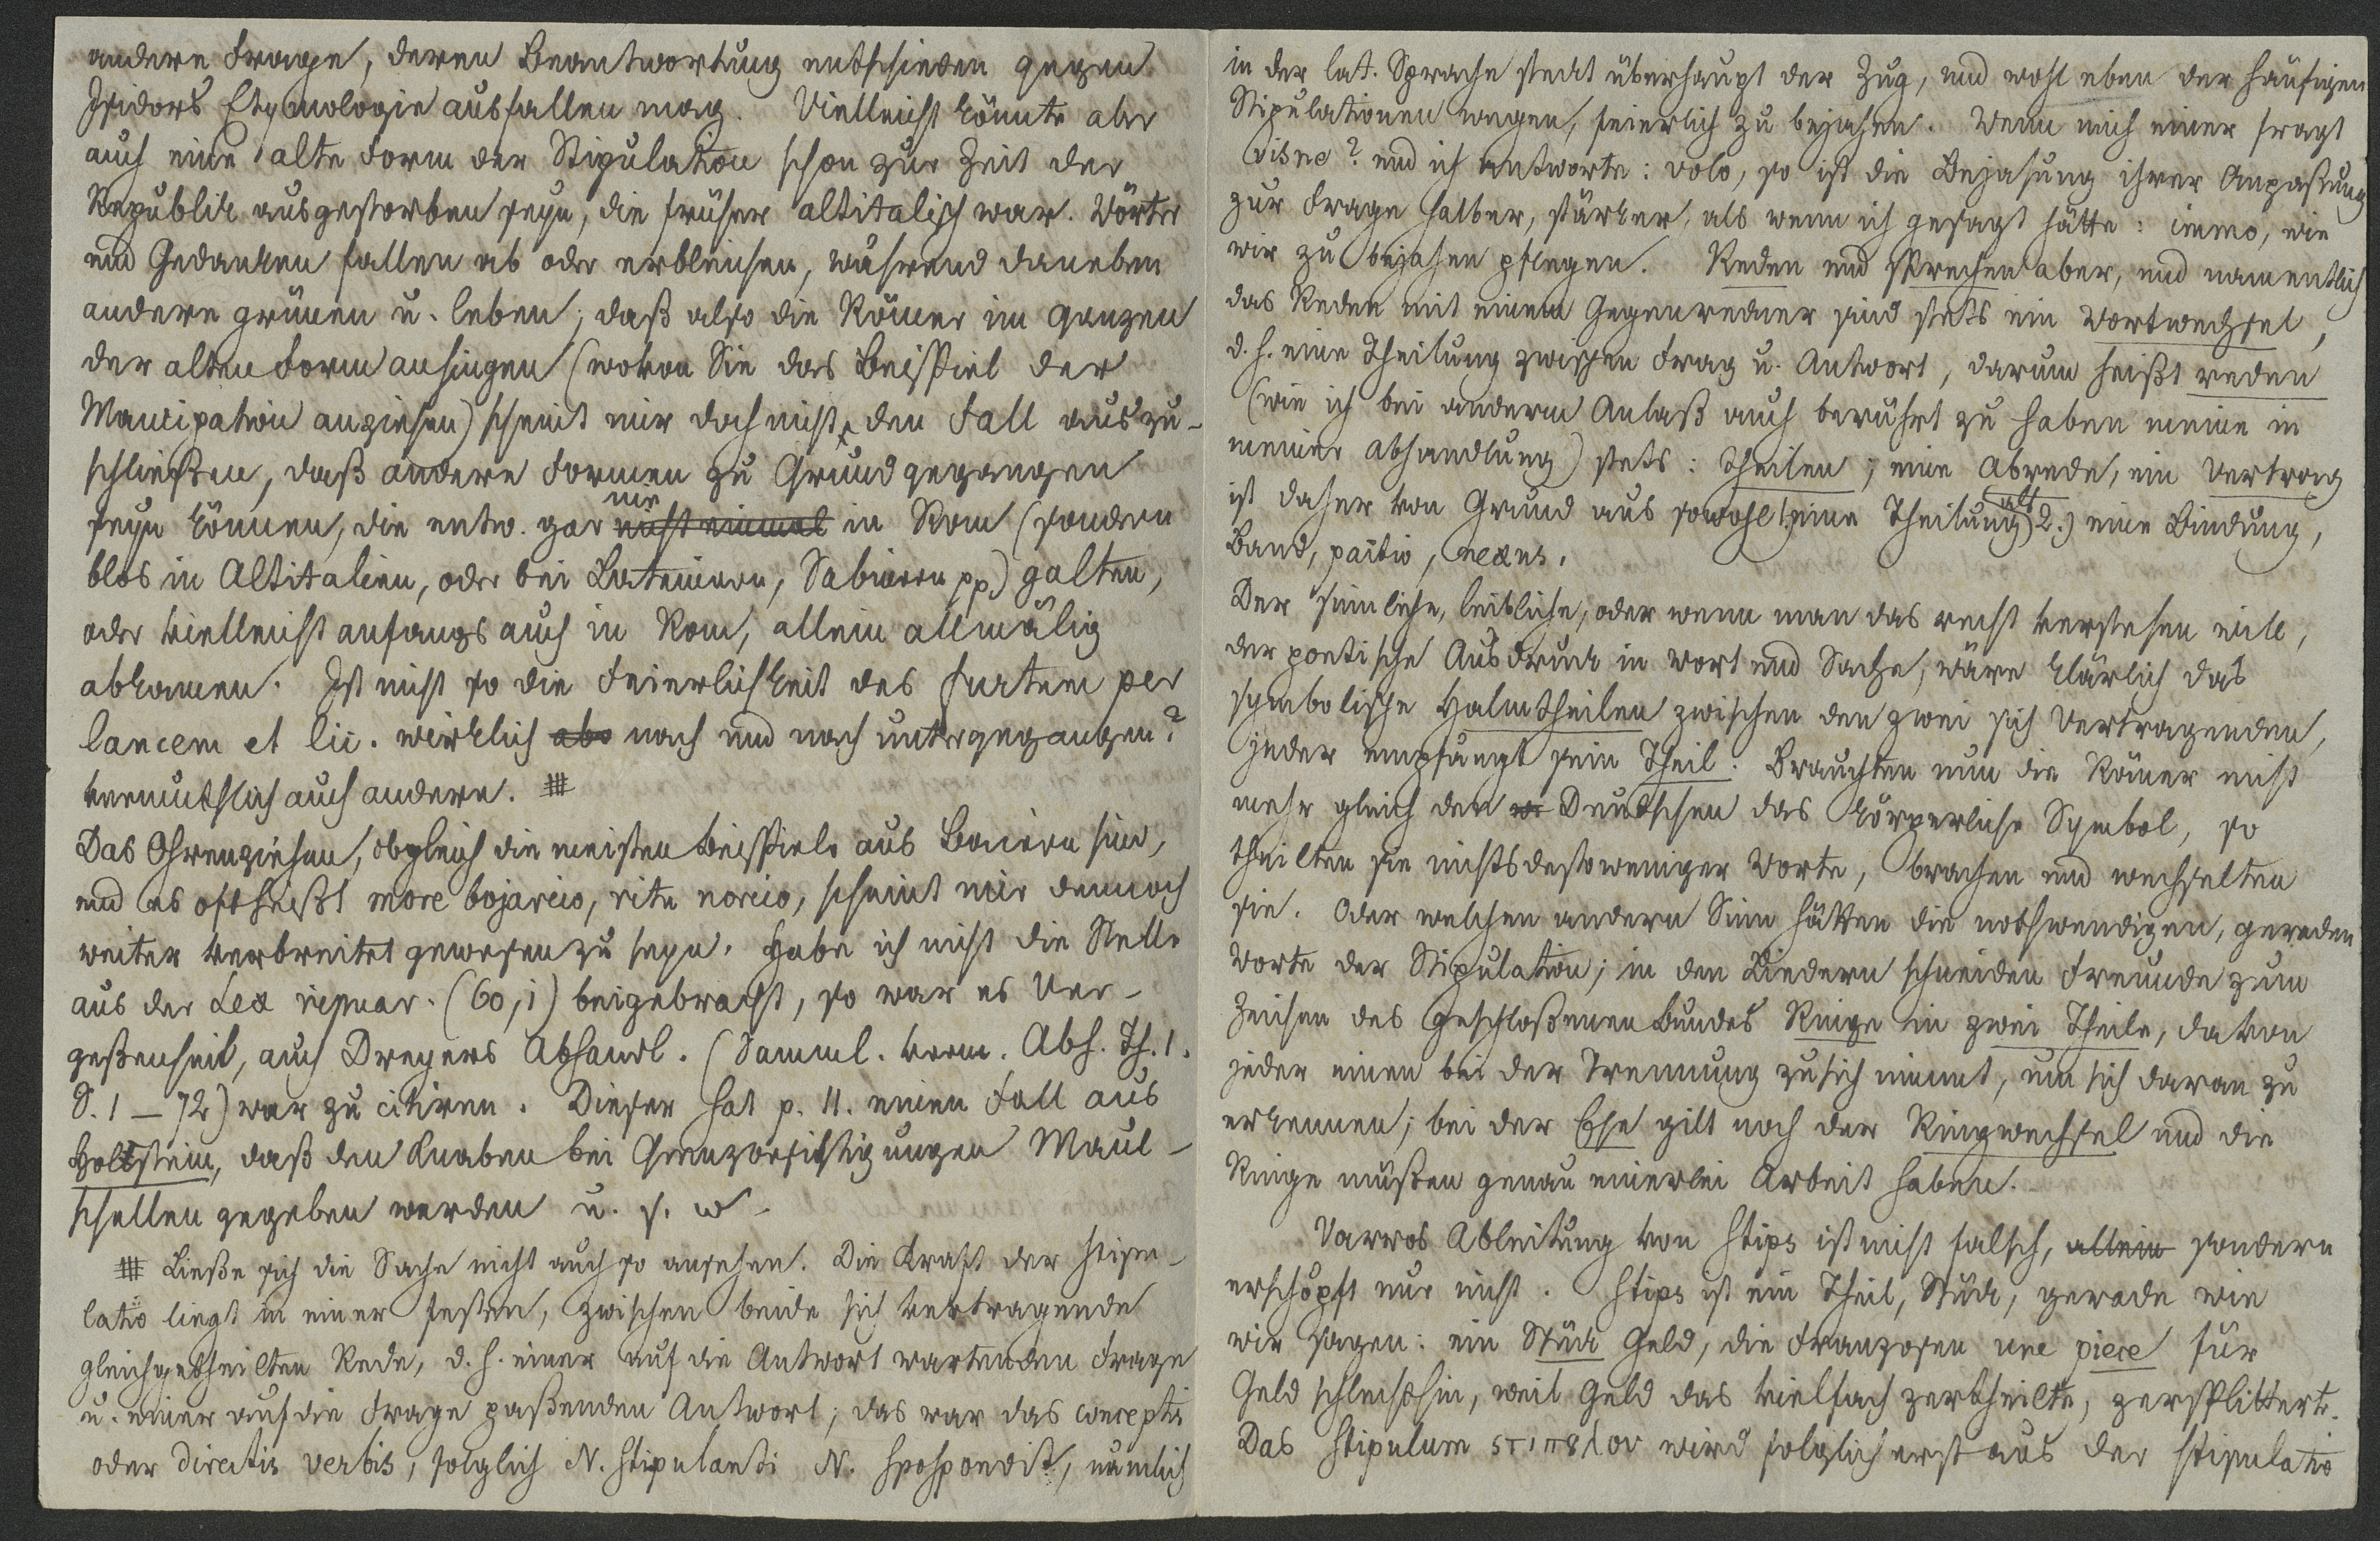 andere Frage, deren Beantwortung entschieden gegen
Isidors Etymologie ausfallen mag. Vielleicht könnte aber
auch eine alte Form der Stipulation schon zur Zeit der
Republik ausgestorben seyn, die früher altitalisch war. Wörter
und Gedanken fallen ab oder erbleichen, während daneben
andere grünen u. leben; daß also die Römer im ganzen
der alten Form anhingen (wovon Sie das Beispiel der
Mancipation anziehen) scheint mir doch nicht den Fall auszu-
schließen, daß andere Formen zu Grund gegangen
seyn können, die entw. gar nie nicht einmal in Rom (sondern
blos in Altitalien, oder bei Lateinern, Sabinern pp) galten,
oder vielleicht anfangs auch in Rom, allein allmälig
abkamen. Ist nicht so die Feierlichkeit des furtum per
lancem et lic. wirklich abs nach und nach untergegangen?
vermuthlich auch andere. #
Das Ohrenziehen, obgleich die meisten Beispiele aus Baiern sind,
und es oft heißt more bojarico, ritu norico, scheint mir dennoch
weiter verbreitet gewesen zu seyn. Habe ich nicht die Stelle
aus der Lex ripuar. (60,1) beigebracht, so war es Ver-
geßenheit, auch Dreyers Abhandl. (Samml. verm. Abh. Th. 1.
S. 1 – 72) war zu citiren. Dieser hat p. 11. einen Fall aus
Holstein, daß den Knaben bei Grenzbesichtigungen Maul-
schellen gegeben werden u. s. w.
# Ließe sich die Sache nicht auch so ansehen. Die Kraft der stipu-
latio liegt in einer festen, zwischen beide sich vertragende
gleichgetheilten Rede, d. h. einer auf die Antwort wartenden Frage
u. einer auf die Frage paßenden Antwort; das war das conceptis
oder directis verbis, folglich N. stipulanti N. spospondit, nämlich
in der lat. Sprache steckt überhaupt der Zug, und wohl eben der häufigen
Stipulationen wegen, feierlich zu bejahen. Wenn mich einer fragt
visne? und ich antworte: volo, so ist die Bejahung ihrer Anpaßung
zur Frage halber, stärker, als wenn ich gesagt hätte: immo, wie
wir zu bejahen pflegen. Reden und sprechen aber, und namentlich
das Reden mit einem Gegenredner sind stets ein Wortwechsel,
d. h. eine Theilung zwischen Frag u. Antwort, darum heißt reden
(wie ich bei anderm Anlaß auch berührt zu haben meine in
meiner Abhandlung) stets: theilen; eine Abrede, ein Vertrag
ist daher von Grund aus sowohl 1.) eine Theilung als 2.) eine Bindung,
Band, pactio, nexus.
Der sinnliche, leibliche, oder wenn man das recht verstehen will,
der poetische Ausdruck in Wort und Sache, wäre klärlich das
symbolische Halmtheilen zwischen den zwei sich Vertragenden,
jeder empfängt sein Theil. Brauchten nun die Römer nicht
mehr gleich den Deutschen das körperliche Symbol, so
theilten sie nichtsdestoweniger Worte, brachen und wechselten
sie. Oder welchen andern Sinn hätten die nothwendigen, geraden
Worte der Stipulation; in den Liedern schneiden Freunde zum
Zeichen des geschloßenen Bundes Ringe in zwei Theile, davon
jeder einen bei der Trennung zu sich nimmt, um sich daran zu
erkennen; bei der Ehe gilt noch der Ringwechsel und die
Ringe müßen genau einerlei Arbeit haben.
Varros Ableitung von stips ist nicht falsch, allein sondern
erschöpft nur nicht. Stips ist ein Theil, Stück, gerade wie
wir sagen: ein Stück Geld, die Franzosen une piece für
Geld schlechthin, weil Geld das vielfach zertheilte, zersplitterte.
Das stipulum wird folglich erst aus der stipulatio